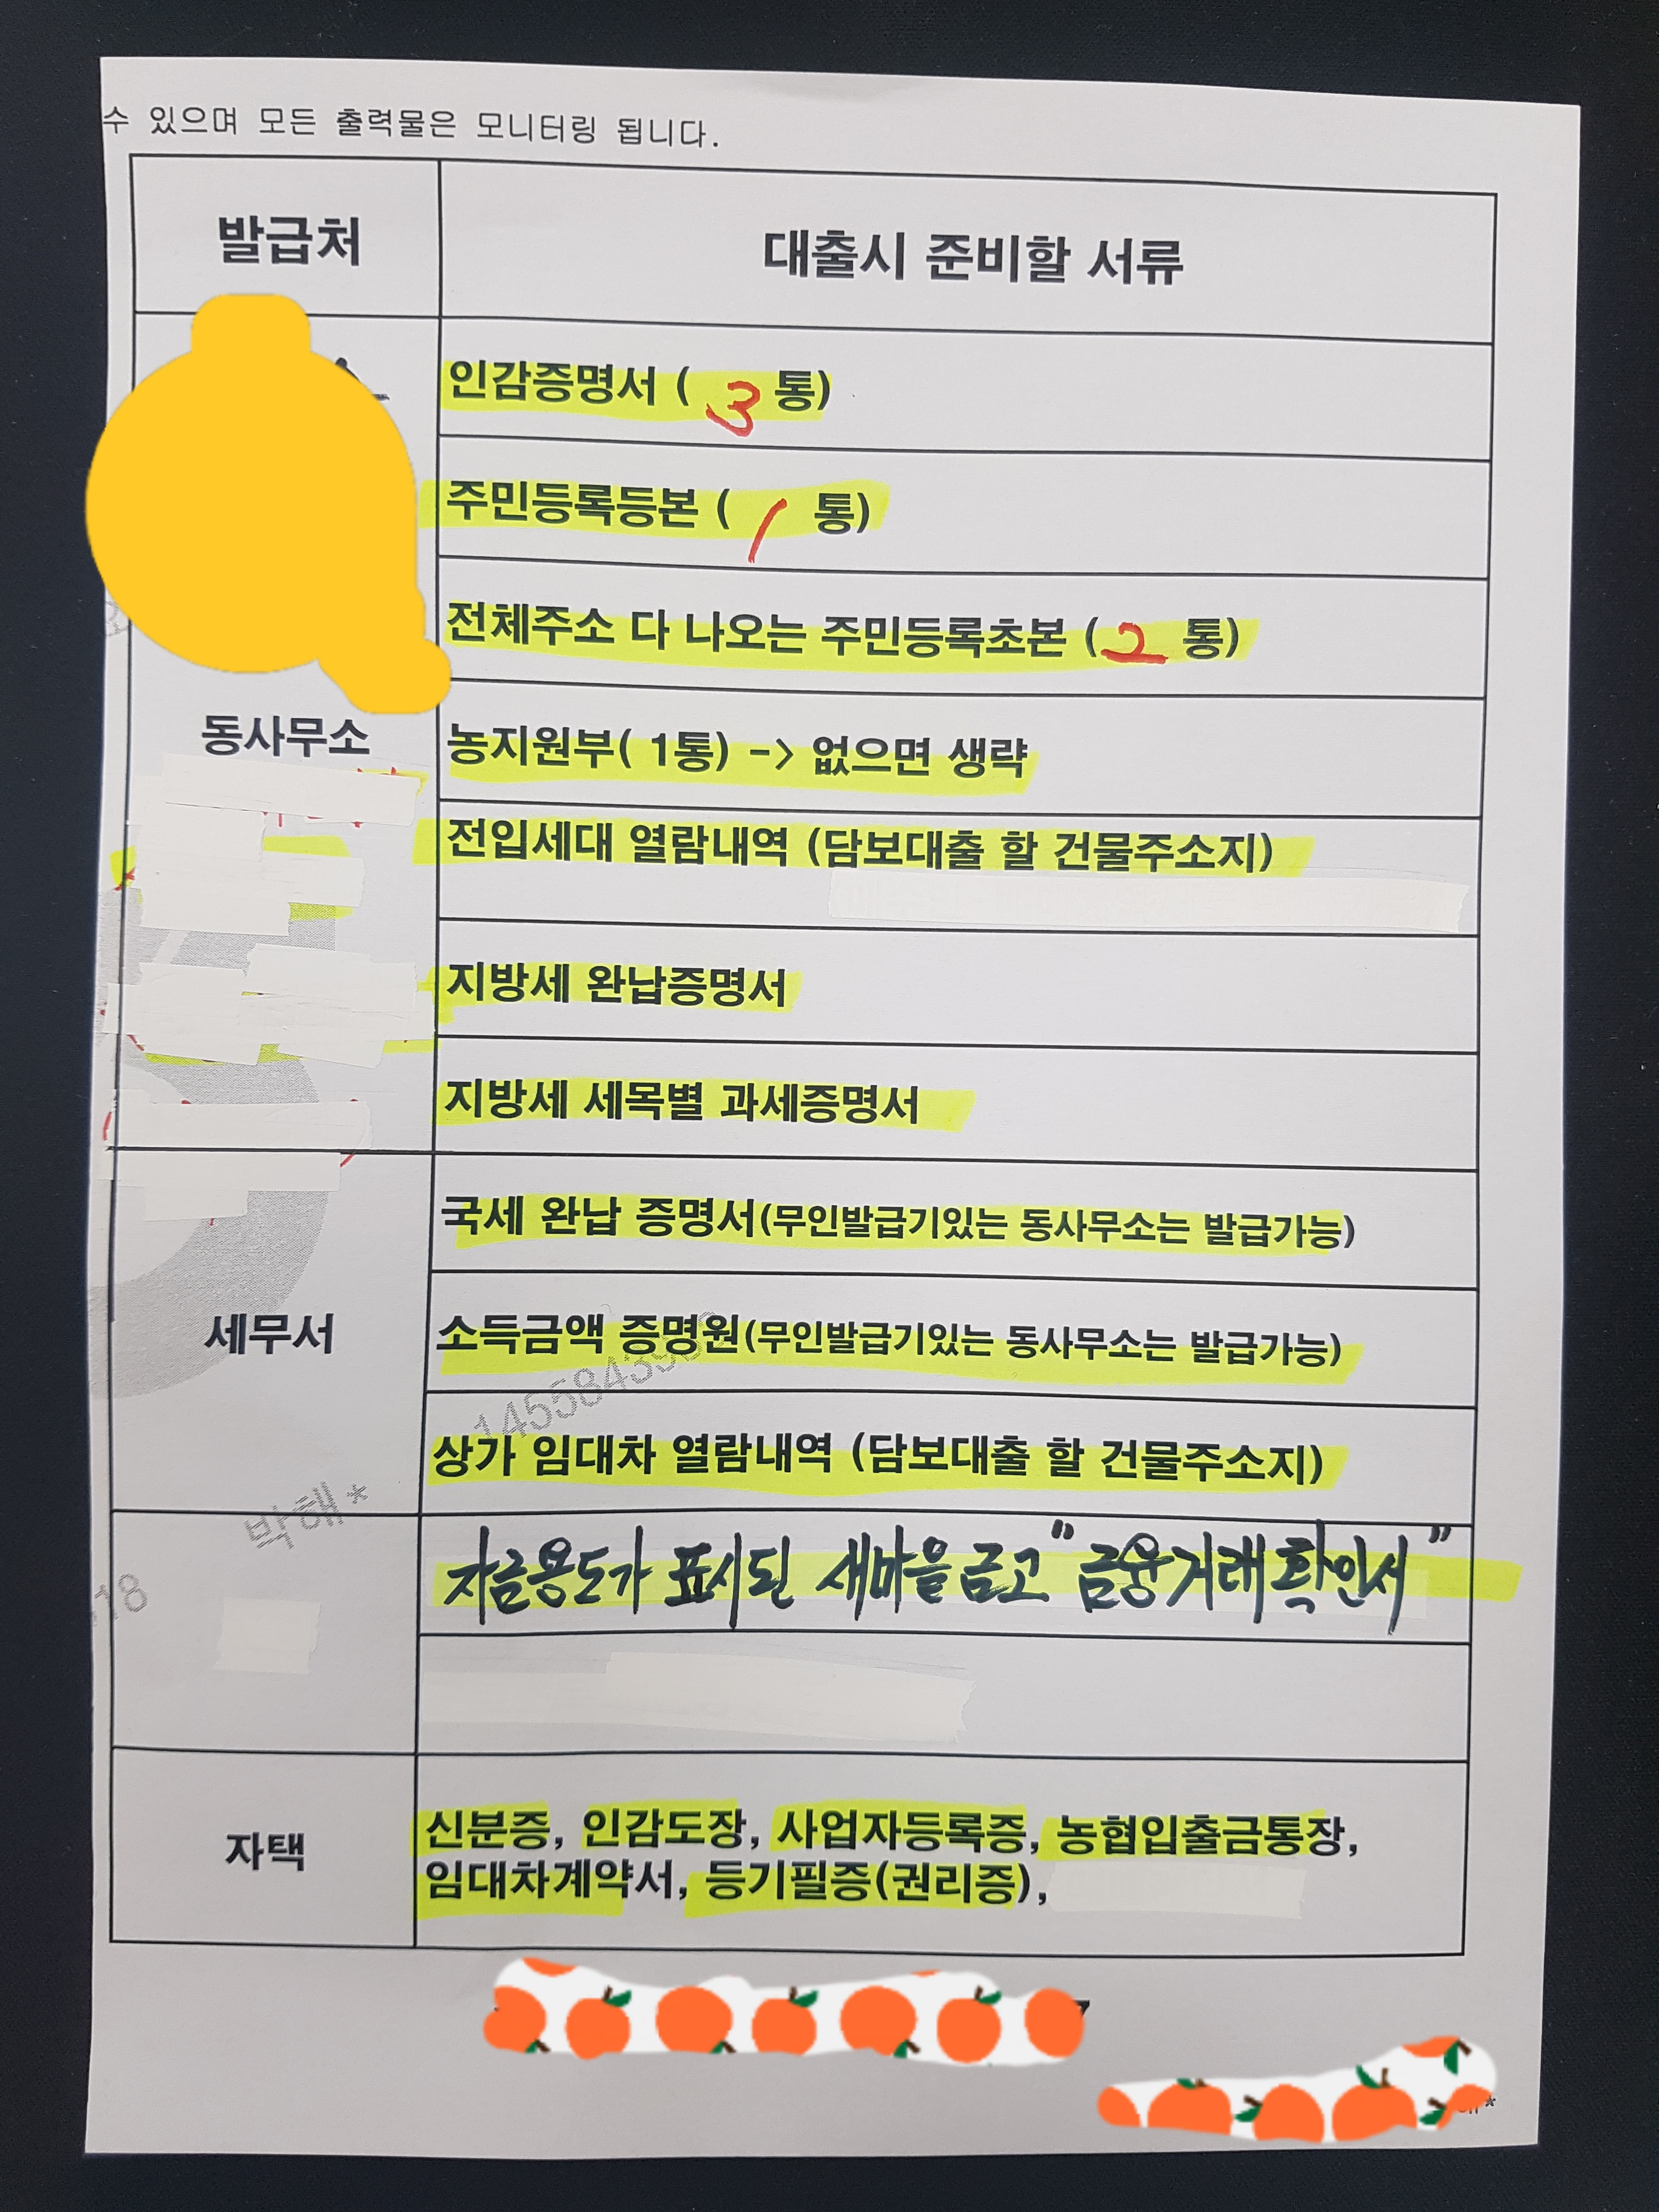 수 있으며 모든 출력물은 모니터링 됩니다.
발급처
대출시 준비할 서류
인감증명서 ( 3 통)
주민등록등본 ( 1 통)
전체주소 다 나오는 주민등록초본 ( 2 통)
동사무소
농지원부( 1통) -> 없으면 생략
전입세대 열람내역 (담보대출 할 건물주소지)
지방세 완납증명서
지방세 세목별 과세증명서
국세 완납 증명서(무인발급기있는 동사무소는 발급가능)
세무서
소득금액 증명원(무인발급기있는 동사무소는 발급가능)
상가 임대차 열람내역 (담보대출 할 건물주소지)
박해*
자금용도가 표시된 새마을금고 "금융거래확인서"
18
자택
신분증, 인감도장, 사업자등록증, 농협입출금통장,
임대차계약서, 등기필증(권리증),